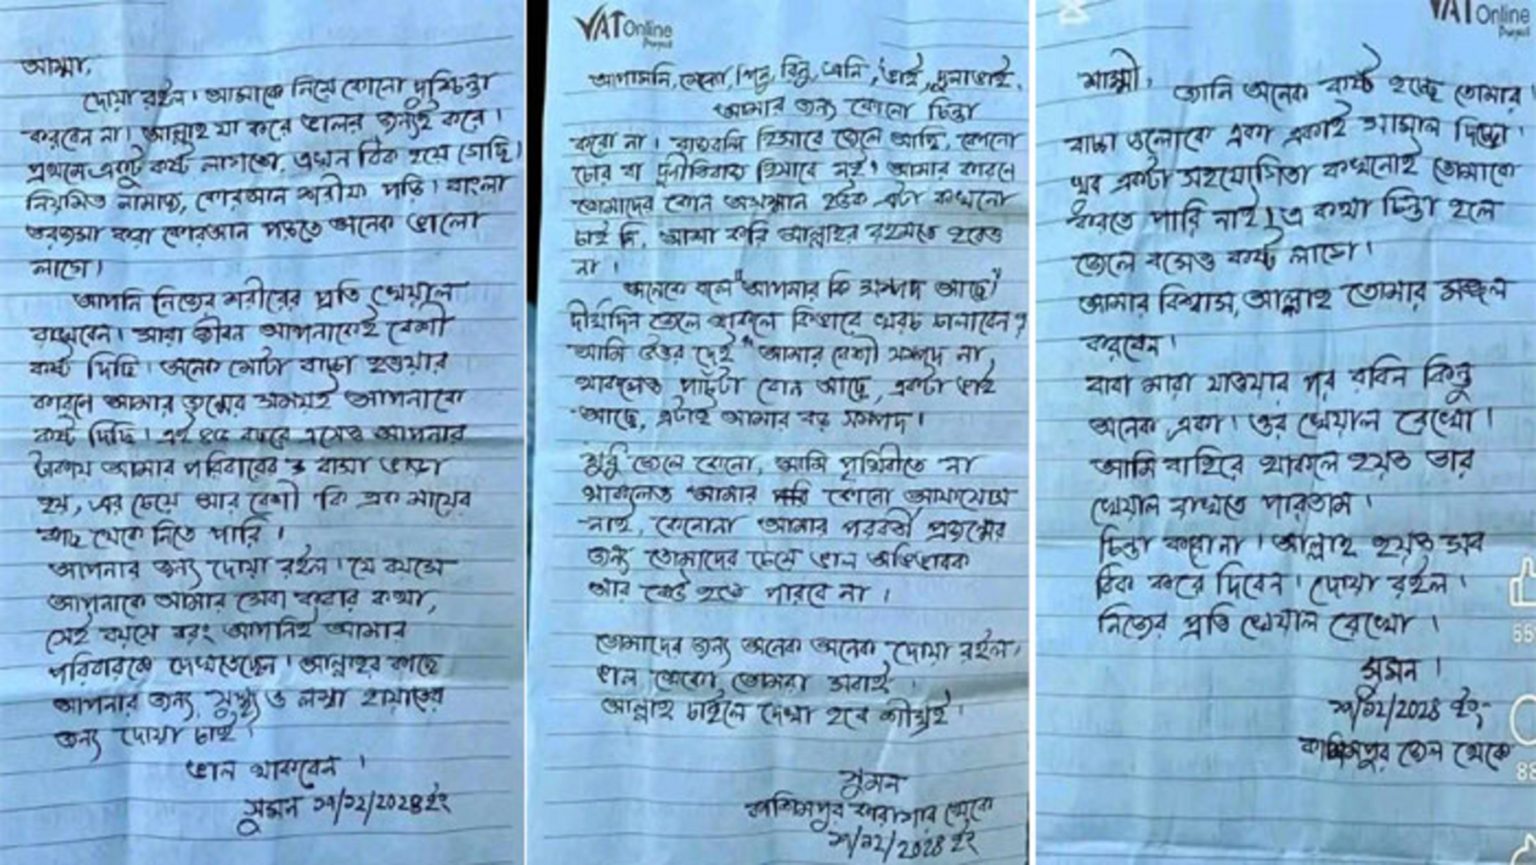 আম্মা,
দোয়া রইল। আমাকে নিয়ে কোনো দুশ্চিন্তা
করবেন না। আল্লাহ যা করে ভালর জন্যই করে।
প্রথমে একটু কষ্ট লাগতো, এখন ঠিক হয়ে গেছি।
নিয়মিত নামাজ, কোরআন শরীফ পড়ি। বাংলা
তরজমা করা কোরআন পড়তে অনেক ভালো
লাগে।
আপনি নিজের শরীরের প্রতি খেয়াল
রাখবেন। সারা জীবন আপনাকেই বেশী
কষ্ট দিছি। অনেক মোটা বাচ্চা হওয়ার
কারনে আমার জন্মের সময়ই আপনাকে
কষ্ট দিছি। এই বছরে এসেও আপনার
টাকায় আমার পরিবারের বাসা ভাড়া
হয়, এর চেয়ে আর বেশী কি এক মায়ের
কাছ থেকে নিতে পারি।
আপনার জন্য দোয়া রইল। যে বয়সে
আপনাকে আমার সেবা করার কথা,
সেই বয়সে বরং আপনিই আমার
পরিবারকে দেখতেছেন। আল্লাহর কাছে
আপনার জন্য সুস্থ্য ও লম্বা হায়াতের
জন্য দোয়া চাই।
ভাল থাকবেন।
সুমন ২৭/১২/২০২৪ ইং
VAT Online
Project
আপামনি, হেনো, শিনু, বিনু, এনি, ভাই, দুলাভাই,
আমার জন্য কোনো চিন্তা
করো না। রাজবন্দি হিসাবে জেলে আছি, কোনো
চোর বা দুর্নীতিবাজ হিসাবে নই। আমার কারনে
তোমাদের কোন অসম্মান হউক এটা কখনো
চাই নি, আশা করি আল্লাহর রহমতে হবেও
না।
অনেকে বলে "আপনার কি সম্পদ আছে"
দীর্ঘদিন জেলে থাকলে কিভাবে খরচ চালাবেন?
আমি উত্তর দেই "আমার বেশী সম্পদ না
থাকলেও পাচঁটা বোন আছে, একটা ভাই
আছে, এটাই আমার বড় সম্পদ।
শুধু জেলে কেনো, আমি পৃথিবীতে না
থাকলেও আমার কোনো আফসোস
নাই, কেনোনা আমার পরবর্তী প্রজন্মের
জন্য তোমাদের চেয়ে ভাল অভিভাবক
আর কেউ হতে পারবে না।
তোমাদের জন্য অনেক অনেক দোয়া রইল।
ভাল থেকো তোমরা সবাই।
আল্লাহ চাইলে দেখা হবে শীঘ্রই।
সুমন
কাশিমপুর কারাগার থেকে
২৭/১২/২০২৪ ইং
VAT Online
Project
শাম্মী,
জানি অনেক কষ্ট হচ্ছে তোমার।
বাচ্চা গুলোকে একা একাই সামাল দিচ্ছো।
খুব একটা সহযোগিতা কখনোই তোমাকে
করতে পারি নাই। এ কথা চিন্তা হলে
জেলে বসেও কষ্ট লাগে।
আমার বিশ্বাস, আল্লাহ তোমার মঙ্গল
করবেন।
বাবা মারা যাওয়ার পর রবিন কিন্তু
অনেক একা। ওর খেয়াল রেখো।
আমি বাহিরে থাকলে হয়ত তার
খেয়াল রাখতে পারতাম।
চিন্তা করো না। আল্লাহ হয়ত সব
ঠিক করে দিবেন। দোয়া রইল।
নিজের প্রতি খেয়াল রেখো।
সুমন।
২৭/১২/২০২৪ ইং
কাশিমপুর জেল থেকে